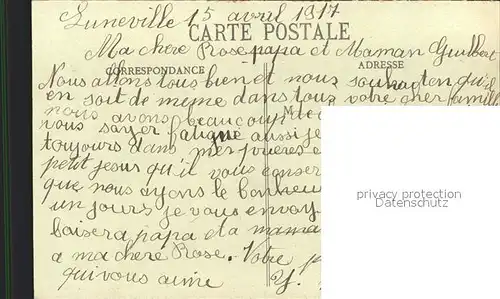 Luneville 15 avril 1917
CARTE POSTALE
Ma chere Rose papa et Maman Guilbert
CORRESPONDANCE ADRESSE
Nous allons tous bien et nous souhaiten qu'il
en soit de meme dans tous votre cher famill
nous avons beaucoup
vous sayer fatigué aussi je
toujours dans mes prieres
petit jesus qu'il vous conser
que nous ayons le bonheu
privacy protection
Datenschutz
un jours je vous envoy
baisera papa et a mama
a ma chere Rose. Votre
qui vous aime Y.